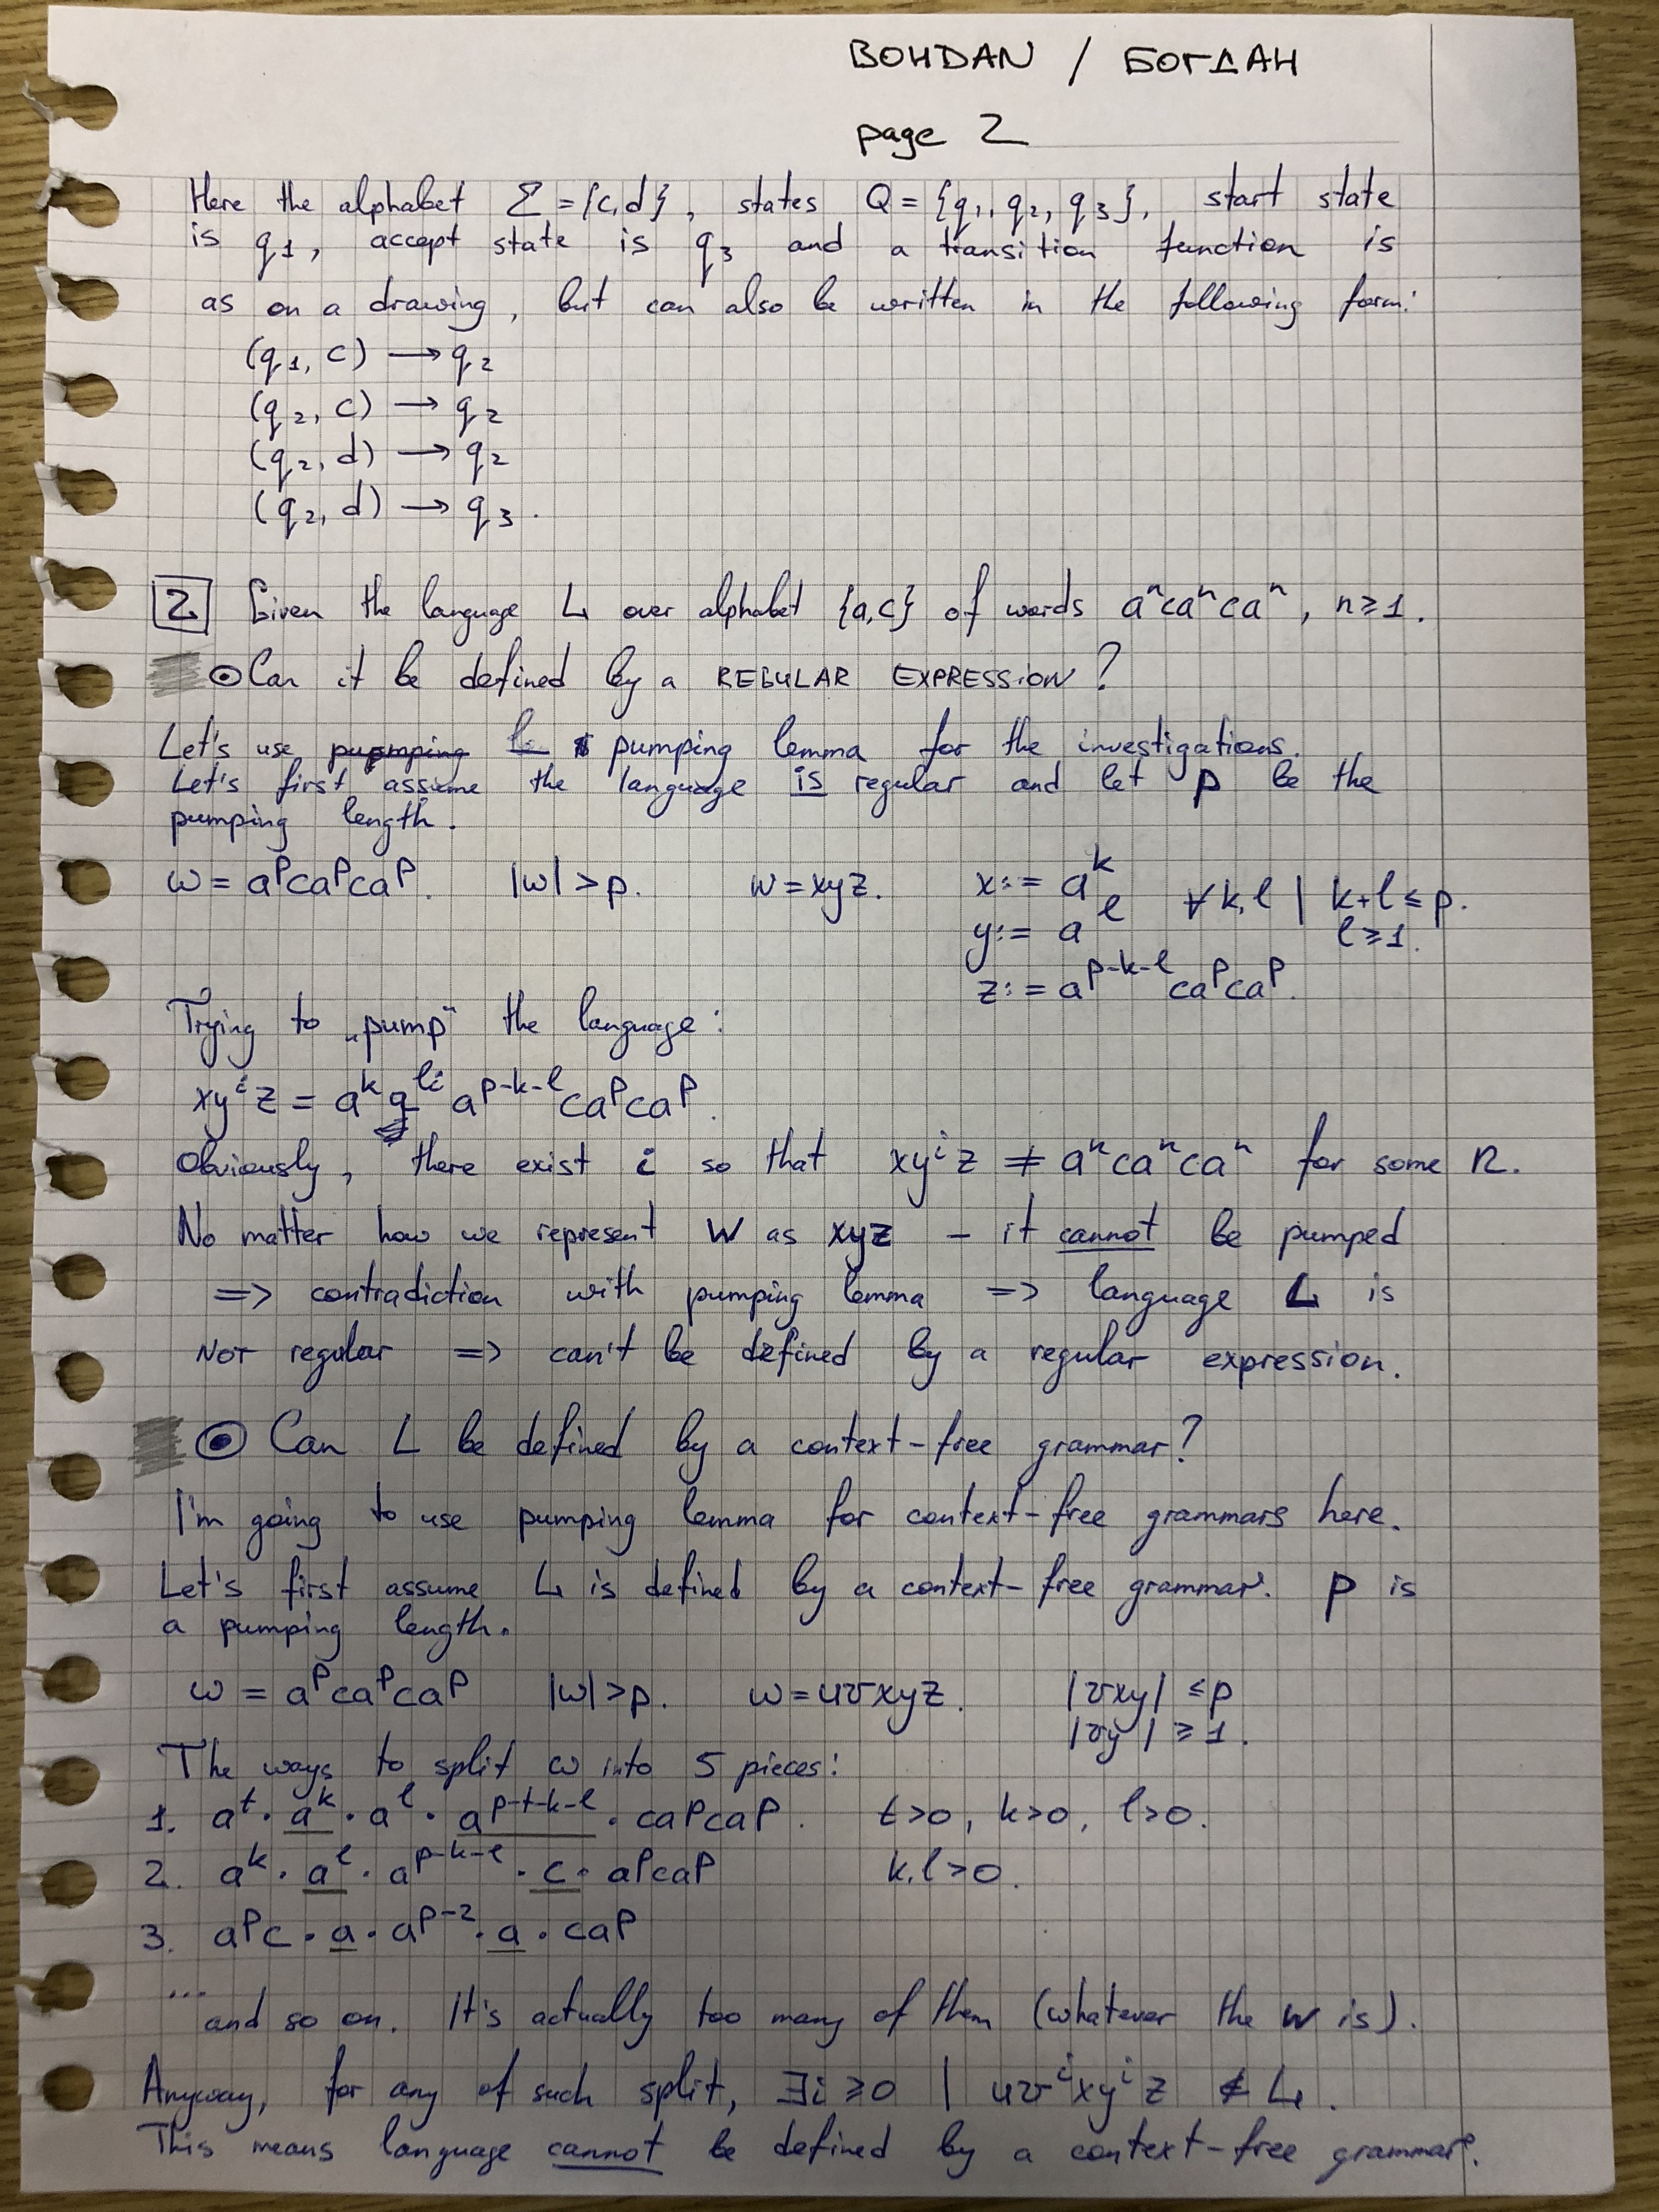 BOHDAN / БОГДАН
page 2
Here the alphabet Σ = {c,d}, states Q = {q₁, q₂, q₃}, start state
is q₁, accept state is q₃ and a transition function is
as on a drawing, but can also be written in the following form:
(q₁, c) → q₂
(q₂, c) → q₂
(q₂, d) → q₂
(q₂, d) → q₃.
2. Given the language L over alphabet {a,c} of words aⁿcaⁿcaⁿ, n≥1.
⊙ Can it be defined by a REGULAR EXPRESSION?
Let's use pumping lemma for the investigations.
Let's first assume the language is regular and let p be the
pumping length.
ω = aᵖcaᵖcaᵖ. |ω| > p. w = xyz. x := aᵏ ∀k,l | k+l ≤ p.
y := aˡ l ≥ 1.
z := aᵖ⁻ᵏ⁻ˡcaᵖcaᵖ.
Trying to „pump" the language:
xyⁱz = aᵏaˡⁱaᵖ⁻ᵏ⁻ˡcaᵖcaᵖ.
Obviously, there exist i so that xyⁱz ≠ aⁿcaⁿcaⁿ for some n.
No matter how we represent w as xyz – it cannot be pumped
=> contradiction with pumping lemma => language L is
NOT regular => can't be defined by a regular expression.
⊙ Can L be defined by a context-free grammar?
I'm going to use pumping lemma for context-free grammars here.
Let's first assume L is defined by a context-free grammar. p is
a pumping length.
ω = aᵖcaᵖcaᵖ |ω| > p. ω = uvxyz. |vxy| ≤ p
|vy| ≥ 1.
The ways to split ω into 5 pieces:
1. aᵗ · aᵏ · aˡ · aᵖ⁻ᵗ⁻ᵏ⁻ˡ · caᵖcaᵖ. t>0, k>0, l>0.
2. aᵏ · aˡ · aᵖ⁻ᵏ⁻ˡ · c · aᵖcaᵖ k,l>0.
3. aᵖc · a · aᵖ⁻² · a · caᵖ
... and so on. It's actually too many of them (whatever the w is).
Anyway, for any of such split, ∃i ≥ 0 | uvⁱxyⁱz ∉ L.
This means language cannot be defined by a context-free grammar.